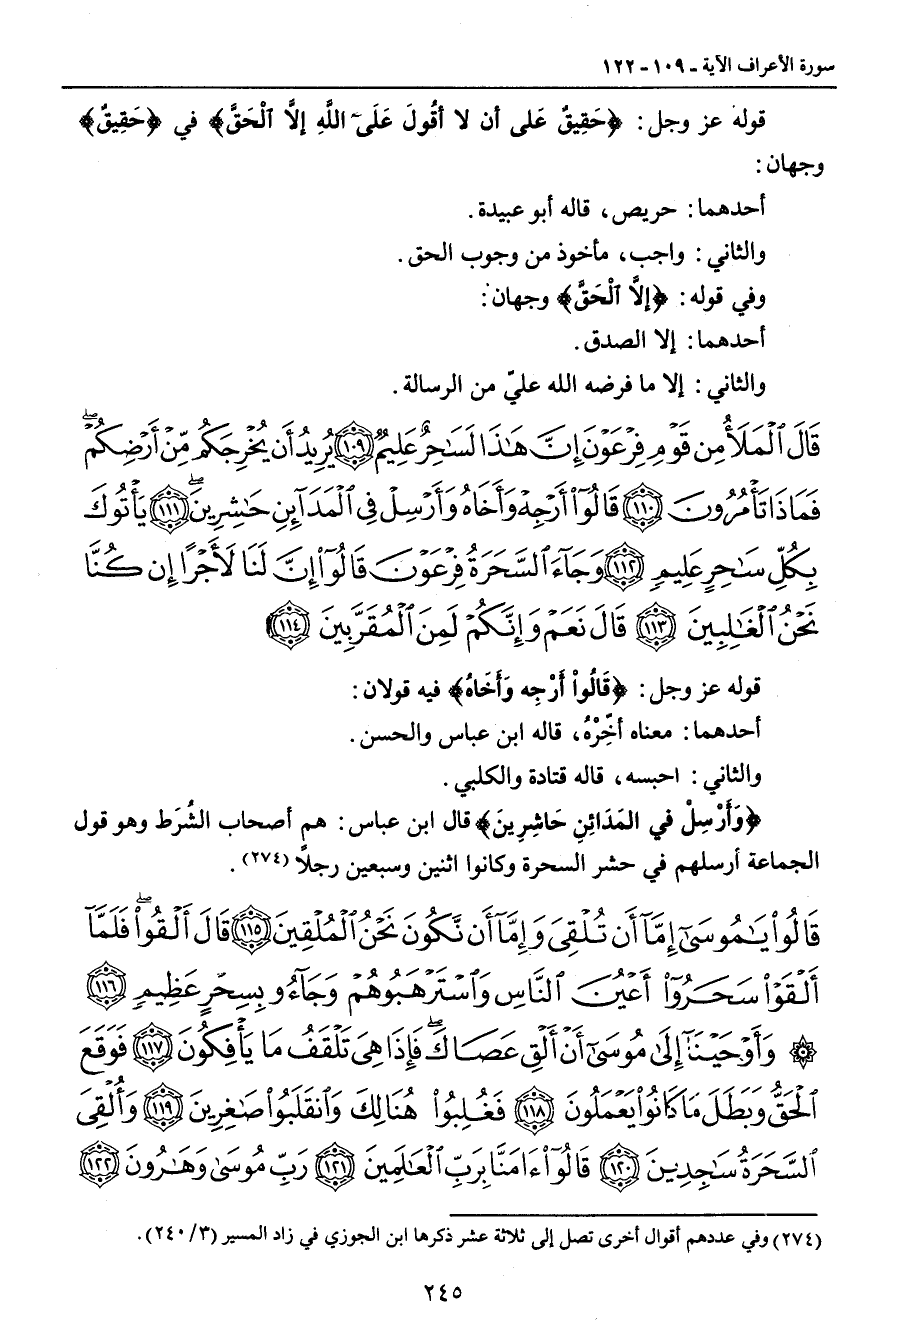 سورة الأعراف الآية - ١٠٩ - ١٢٢
قوله عز وجل: ﴿حَقِيقٌ عَلى أن لا أقُولَ عَلَىَ اللَّهِ إلَّا ٱلْحَقَّ﴾ في ﴿حَقِيقٌ﴾
وجهان:
أحدهما: حريص، قاله أبو عبيدة.
والثاني: واجب، مأخوذ من وجوب الحق.
وفي قوله: ﴿إلَّا ٱلْحَقَّ﴾ وجهان:
أحدهما: إلا الصدق.
والثاني: إلا ما فرضه الله عليّ من الرسالة.
قَالَ ٱلْمَلَأُ مِن قَوْمِ فِرْعَوْنَ إِنَّ هَٰذَا لَسَٰحِرٌ عَلِيمٌ ﴿١٠٩﴾ يُرِيدُ أَن يُخْرِجَكُم مِّنْ أَرْضِكُمْ ۖ
فَمَاذَا تَأْمُرُونَ ﴿١١٠﴾ قَالُوٓا۟ أَرْجِهْ وَأَخَاهُ وَأَرْسِلْ فِى ٱلْمَدَآئِنِ حَٰشِرِينَ ۖ ﴿١١١﴾ يَأْتُوكَ
بِكُلِّ سَٰحِرٍ عَلِيمٍ ﴿١١٢﴾ وَجَآءَ ٱلسَّحَرَةُ فِرْعَوْنَ قَالُوٓا۟ إِنَّ لَنَا لَأَجْرًا إِن كُنَّا
نَحْنُ ٱلْغَٰلِبِينَ ﴿١١٣﴾ قَالَ نَعَمْ وَإِنَّكُمْ لَمِنَ ٱلْمُقَرَّبِينَ ﴿١١٤﴾
قوله عز وجل: ﴿قَالُواْ أَرْجِه وَأَخَاهُ﴾ فيه قولان:
أحدهما: معناه أخِّرْهُ، قاله ابن عباس والحسن.
والثاني: احبسه، قاله قتادة والكلبي.
﴿وَأَرْسِلْ في المَدَائِنِ حَاشِرِينَ﴾ قال ابن عباس: هم أصحاب الشُرَط وهو قول
الجماعة أرسلهم في حشر السحرة وكانوا اثنين وسبعين رجلاً (٢٧٤).
قَالُوا۟ يَٰمُوسَىٰٓ إِمَّآ أَن تُلْقِىَ وَإِمَّآ أَن نَّكُونَ نَحْنُ ٱلْمُلْقِينَ ﴿١١٥﴾ قَالَ أَلْقُوا۟ ۖ فَلَمَّآ
أَلْقَوْا۟ سَحَرُوٓا۟ أَعْيُنَ ٱلنَّاسِ وَٱسْتَرْهَبُوهُمْ وَجَآءُو بِسِحْرٍ عَظِيمٍ ﴿١١٦﴾
۞ وَأَوْحَيْنَآ إِلَىٰ مُوسَىٰٓ أَنْ أَلْقِ عَصَاكَ ۖ فَإِذَا هِىَ تَلْقَفُ مَا يَأْفِكُونَ ﴿١١٧﴾ فَوَقَعَ
ٱلْحَقُّ وَبَطَلَ مَا كَانُوا۟ يَعْمَلُونَ ﴿١١٨﴾ فَغُلِبُوا۟ هُنَالِكَ وَٱنقَلَبُوا۟ صَٰغِرِينَ ﴿١١٩﴾ وَأُلْقِىَ
ٱلسَّحَرَةُ سَٰجِدِينَ ﴿١٢٠﴾ قَالُوٓا۟ ءَامَنَّا بِرَبِّ ٱلْعَٰلَمِينَ ﴿١٢١﴾ رَبِّ مُوسَىٰ وَهَٰرُونَ ﴿١٢٢﴾
(٢٧٤) وفي عددهم أقوال أخرى تصل إلى ثلاثة عشر ذكرها ابن الجوزي في زاد المسير (٢٤٠/٣).
٢٤٥